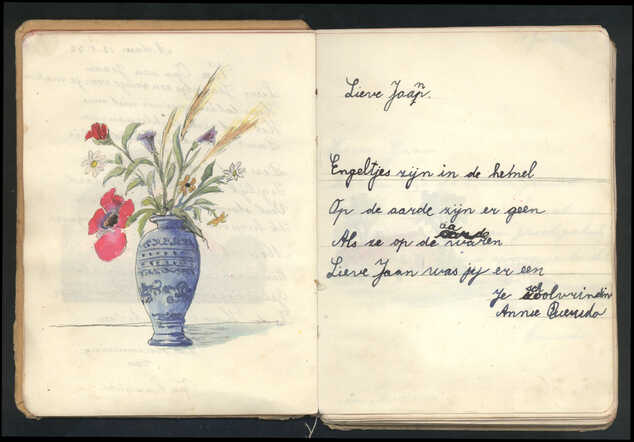 Lieve Jaan.
Engeltjes zijn in de hemel
Op de aarde zijn er geen
Als ze op de waren
Lieve Jaan was jy er een
Je schoolvrindin
Annie Querido